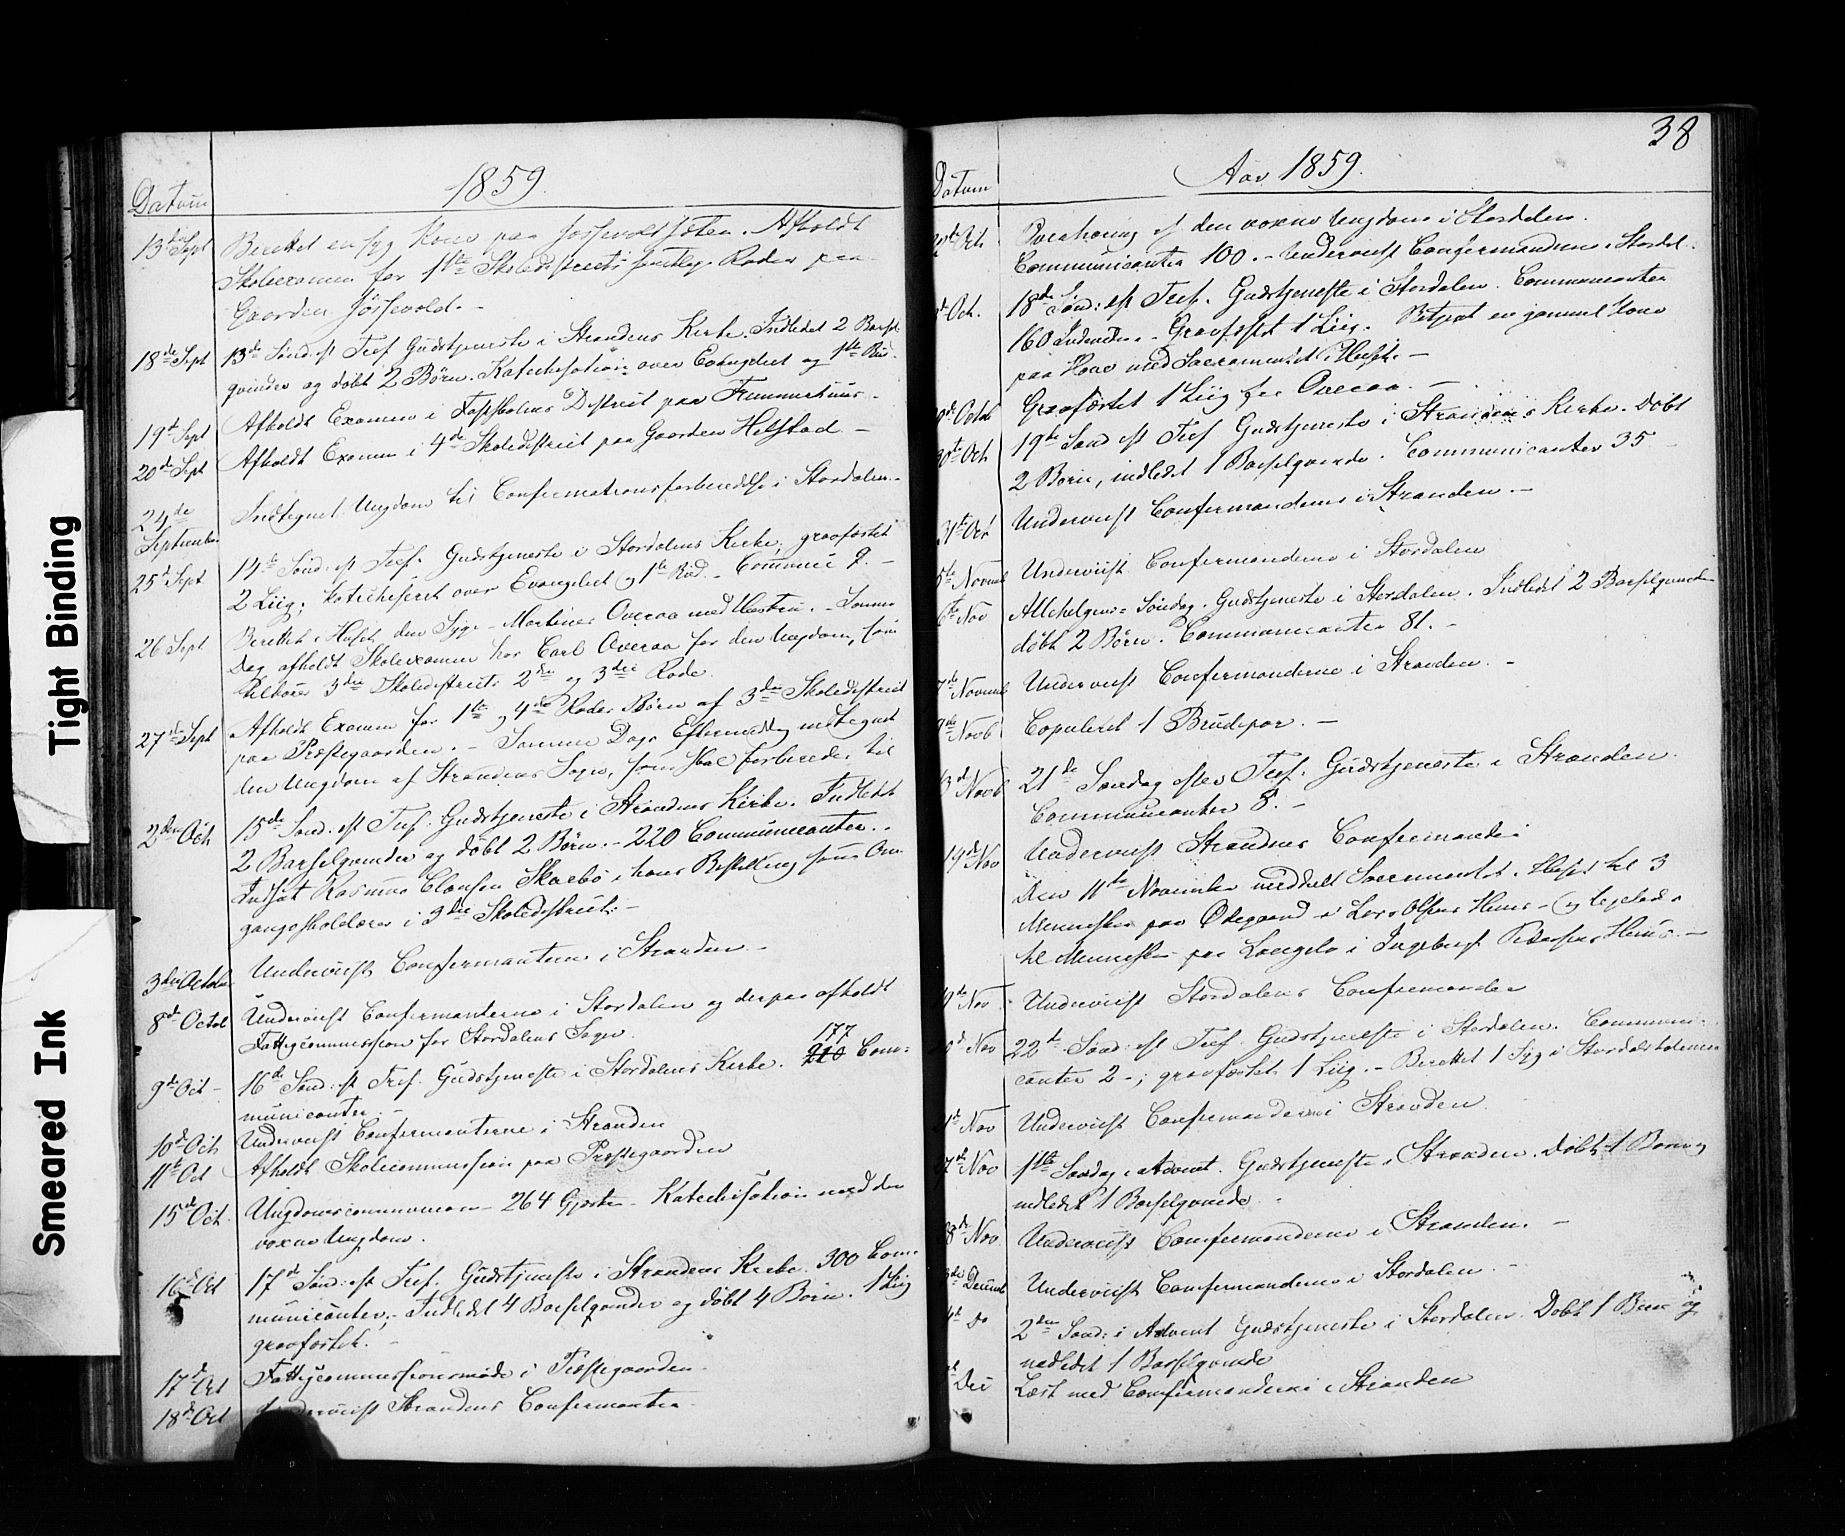 Tight Binding
Smeared Ink
1859
Datum
13de Sept Berettet en syg Kone paa . Afholdt
Skoleexamen for 1ste Skoledistricts Roder paa
Gaarden Jossevold. -
18de Sept 13de Sønd: eft Tref Gudstjeneste i Strandens Kirke. Indledet 2 Barsel
qvinder og døbt 2 Børn. Katechisation over Evangeliet og 1ste Bud.
19de Sept Afholdt Examen i District paa
20de Sept Afholdt Examen i 4de Skoledistrict paa Gaarden Helstad -
24de
September Indtegnet Ungdom til Confirmationsforberedelse i Stordalen -
25de Sept 14de Sønd: eft Tref: Gudstjeneste i Stordalens Kirke, gravfæstet
2 Liig; Katechiseret over Evangeliet og 1ste Bud. Commu: 2. -
26 Sept Berettet i Huset den Syge Overaa med Hustru. - Samme
Dag afholdt Skoleexamen hos Carl Overaa for den Ungdom, som
tilhører 3die Skoledistricts 2de og 3die Rode.
27de Sept Afholdt Examen for 1ste og 4de Rodes Børn af 3die Skoledistrict
paa Præstegaarden. - Samme Dags Eftermiddag indtegnet
den Ungdom af Strandens Sogn, som skal forberedes til
2den Oct 15de Sønd: eft Tref: Gudstjeneste i Strandens Kirke. Indledet
2 Barselqvinder og døbt 2 Børn. - 220 Communicanter. -
Indsat Rasmus Clausen Skarbø i hans Bestilling som Om-
gangsskolelærer i 3die Skoledistrict. -
3die Octob Underviist Confirmanterne i Stranden -
8de Octob Underviist Confirmanterne i Stordalen og derpaa afholdt
Fattigcommission for Stordalens Sogn.
177
9de Oct - 16de Sønd: eft Tref. Gudstjeneste i Stordalens Kirke. 210 Com-
municanter. -
10de Oct Underviist Confirmanterne i Stranden
11te Oct Afholdt Skolecommission paa Præstegaarden
15de Oct. Ungdomscommunion - 264 Gjester - Katechisation med den
voxne Ungdom.
16de Oct 17de Sønd: eft Tref. Gudstjeneste i Strandens Kirke. 300 Com-
municanter, - Indledet 4 Barselqvinder og døbt 4 Børn. 1 Liig
gravfæstet. -
17de Oct Fattigcommissionsmøde i Præstegaarden -
18de Oct Underviist Strandens Confirmanter
38
Aar 1859.
Datum
Oct. Overhøring af den voxne Ungdom i Stordalen.
Communicanter 100. - Underviist Confirmanderne i Stordal.
Oct. 18de Sønd: eft Tref. Gudstjeneste i Stordalen. Communicanter
160 - Gravfæstet 1 Liig. en gammel Kone
paa Hove med Sacramentet i Huset. -
Octob Gravfæstet 1 Liig fra Overaa. -
30te Oct 19de Sønd eft Tref Gudstjeneste i Strandens Kirke. Døbt
2 Børn, indledet 1 Barselqvinde. Communicanter 35 -
31te Oct Underviist Confirmanderne i Stranden. -
5te Novemb Underviist Confirmanderne i Stordalen
6te Nov Allehelgens-Søndag. Gudstjeneste i Stordalen. Indledet 2 Barselqvinder
døbt 2 Børn. Communicanter 81. -
7de Novemb Underviist Confirmanderne i Stranden. -
9de Novb Copuleret 1 Brudepar. -
13de Novb 21de Søndag efter Tref. Gudstjeneste i Stranden.
Communicanter 8. -
19de Nov Underviist Strandens Confirmander
Den 11te November meddelt Sacramentet i Huset til 3
Mennesker paa Ødegaard i Lars Olsens Huus - og ligeledes
til Mennesker paa Langelo i Ingebrigt Huus. -
Nov. Underviist Stordalens Confirmander
Nov 22de Sønd: eft Tref. Gudstjeneste i Stordalen. Communi-
canter 2 -; gravfæstet 1 Liig. - Berettet 1 Syg i
Nov Underviist Confirmanderne i Stranden
27de Nov 1ste Søndag i Advent. Gudstjeneste i Stranden. Døbt 1 Barn og
indledet 1 Barselqvinde -
28de Nov Underviist Confirmanderne i Stranden. -
3die Decemb Underviist Confirmanderne i Stordalen. -
4de Do 2den Sønd: i Advent Gudstjeneste i Stordalen. Døbt 1 Barn og
indledet 1 Barselqvinde
Dec Læst med Confirmanderne i Stranden